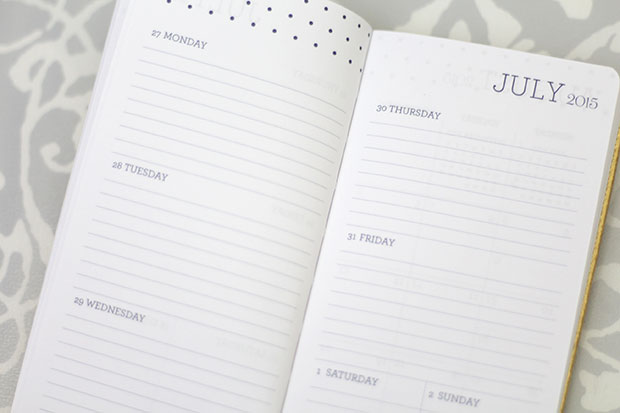 27 MONDAY
28 TUESDAY
29 WEDNESDAY
JULY 2015
30 THURSDAY
31 FRIDAY
1 SATURDAY
2 SUNDAY